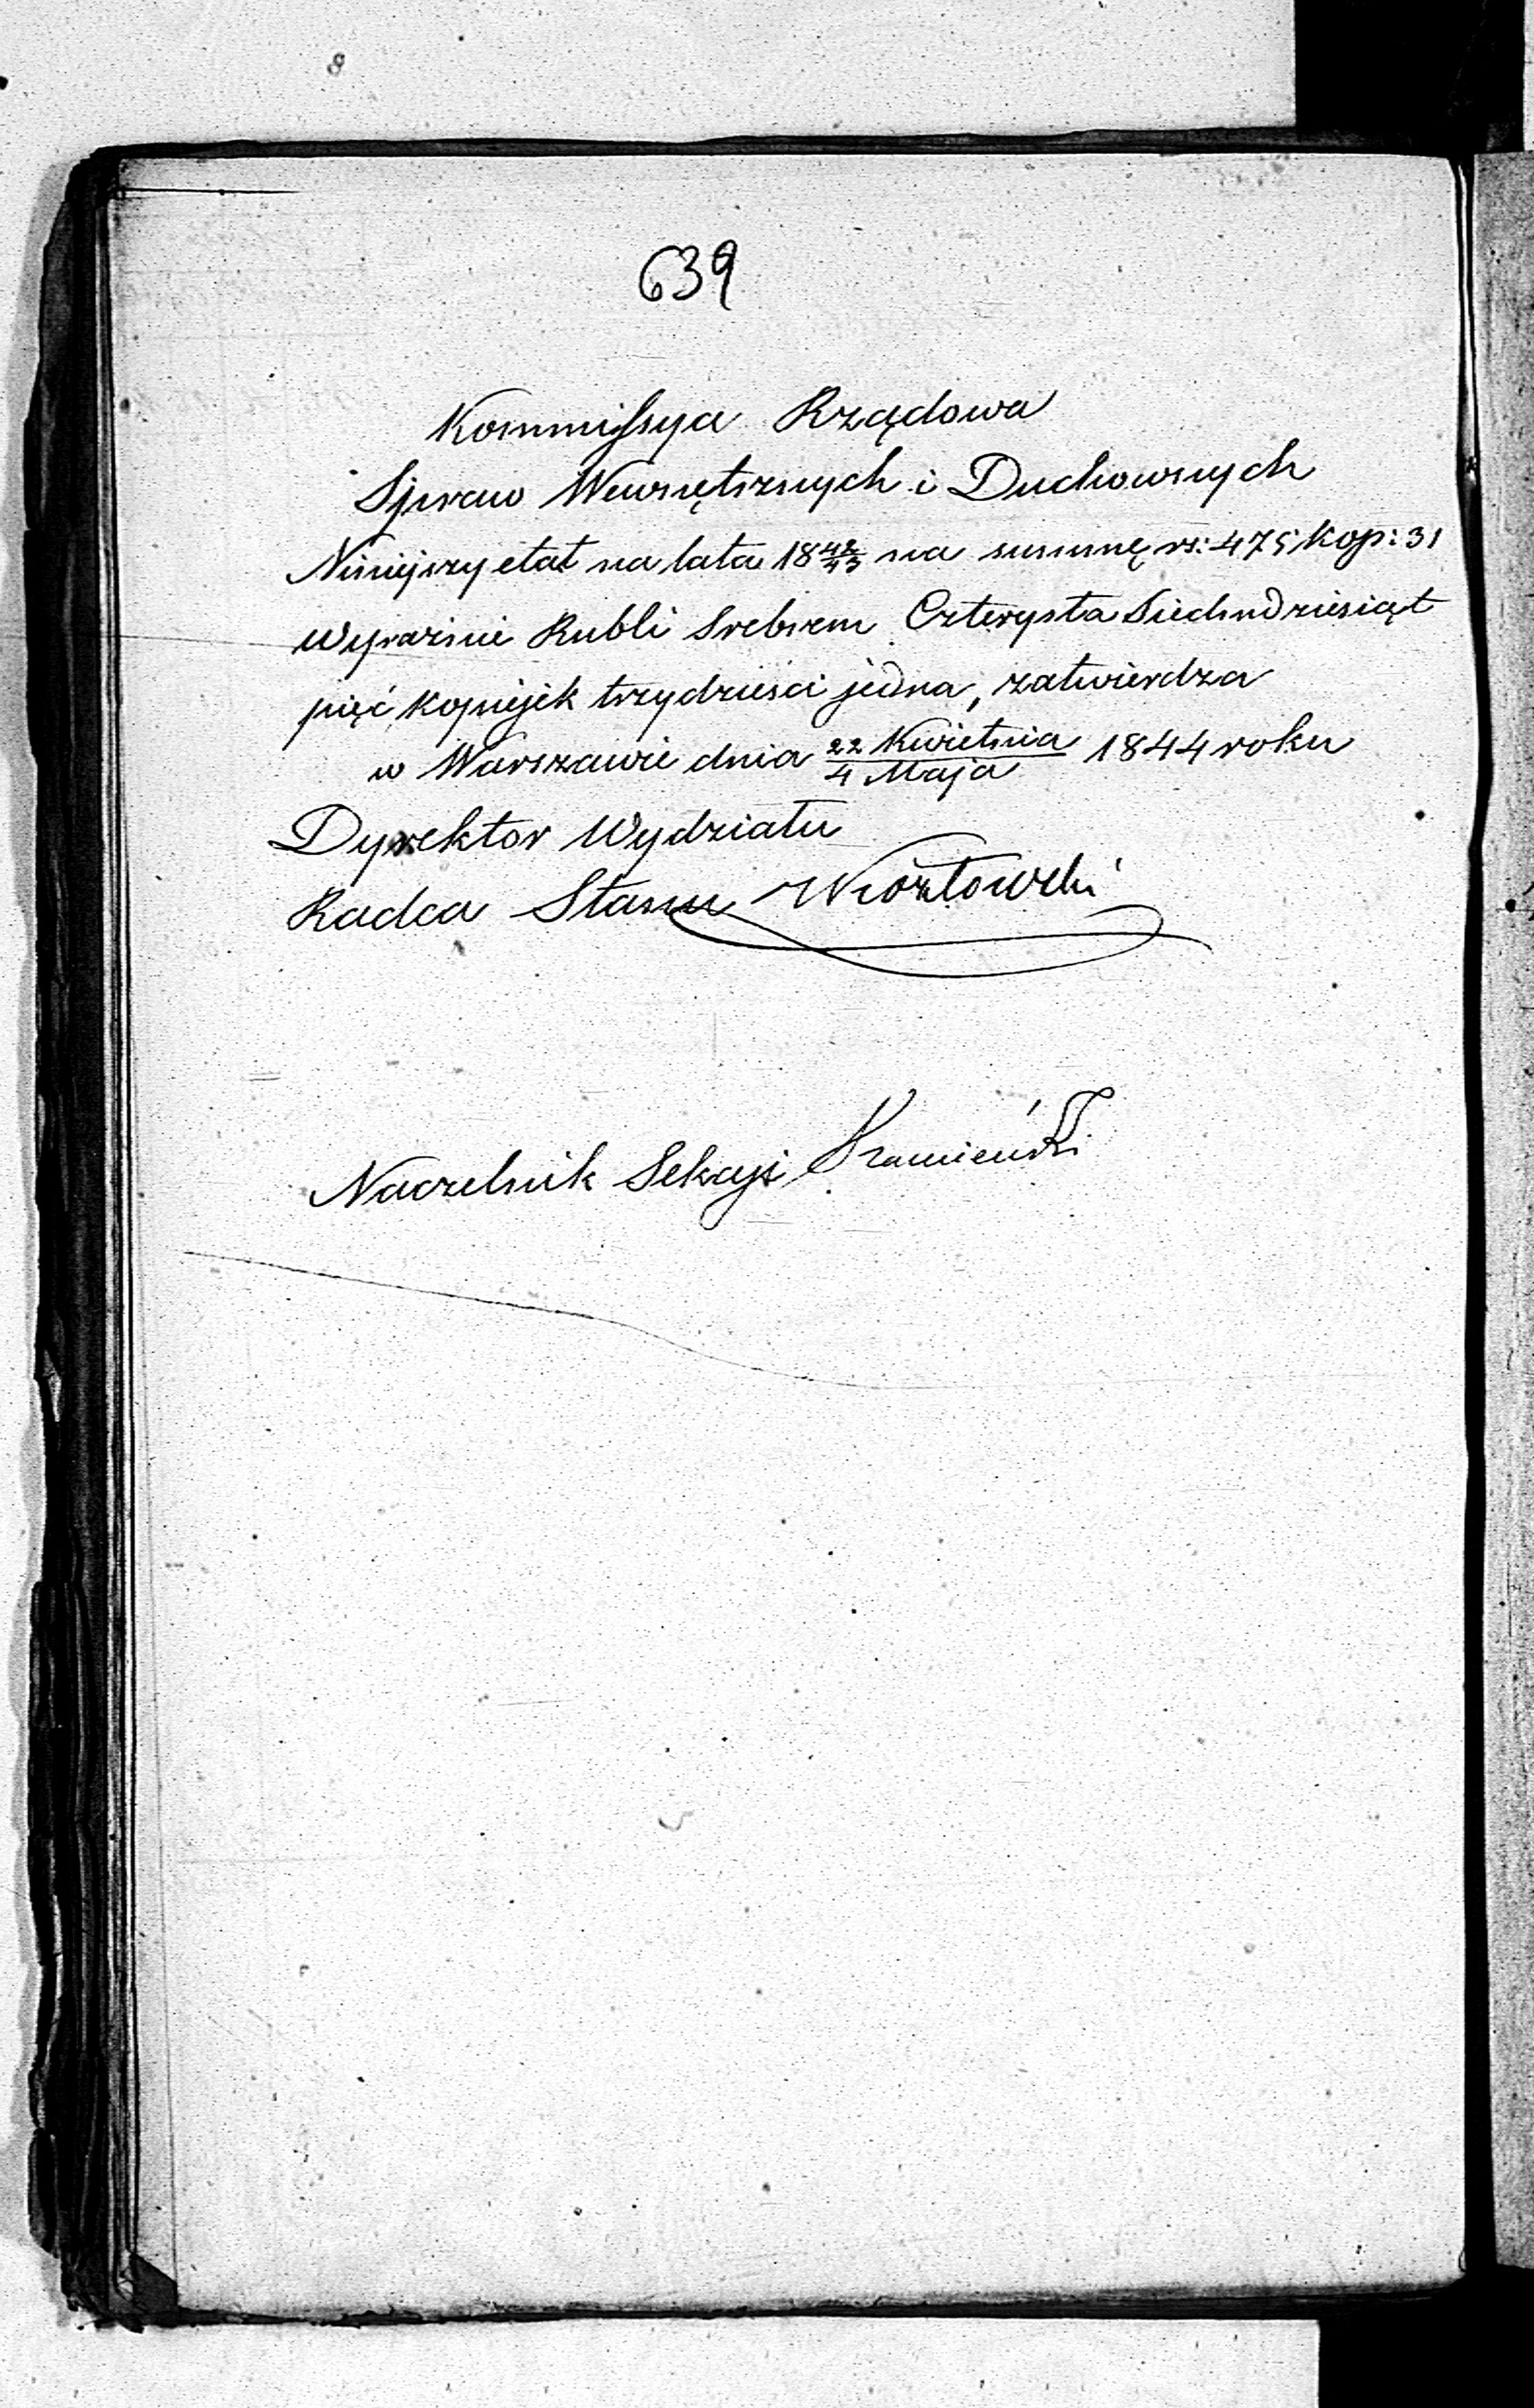 639
Kommissya Rządowa
Spraw Wewnętrznych i Duchownych
Niniejszy etat na lata 18 42/43 na summę rs: 475 kop: 31
Wyraźnie Rubli Srebrem Czterysta Siedmdziesiąt
pięć, kopiejek trzydzieści jedna, zatwierdza
w Warszawie dnia 22 Kwietnia / 4 Maja 1844 roku
Dyrektor Wydziału
Radca Stanu
Naczelnik Sekcyi Kamieński